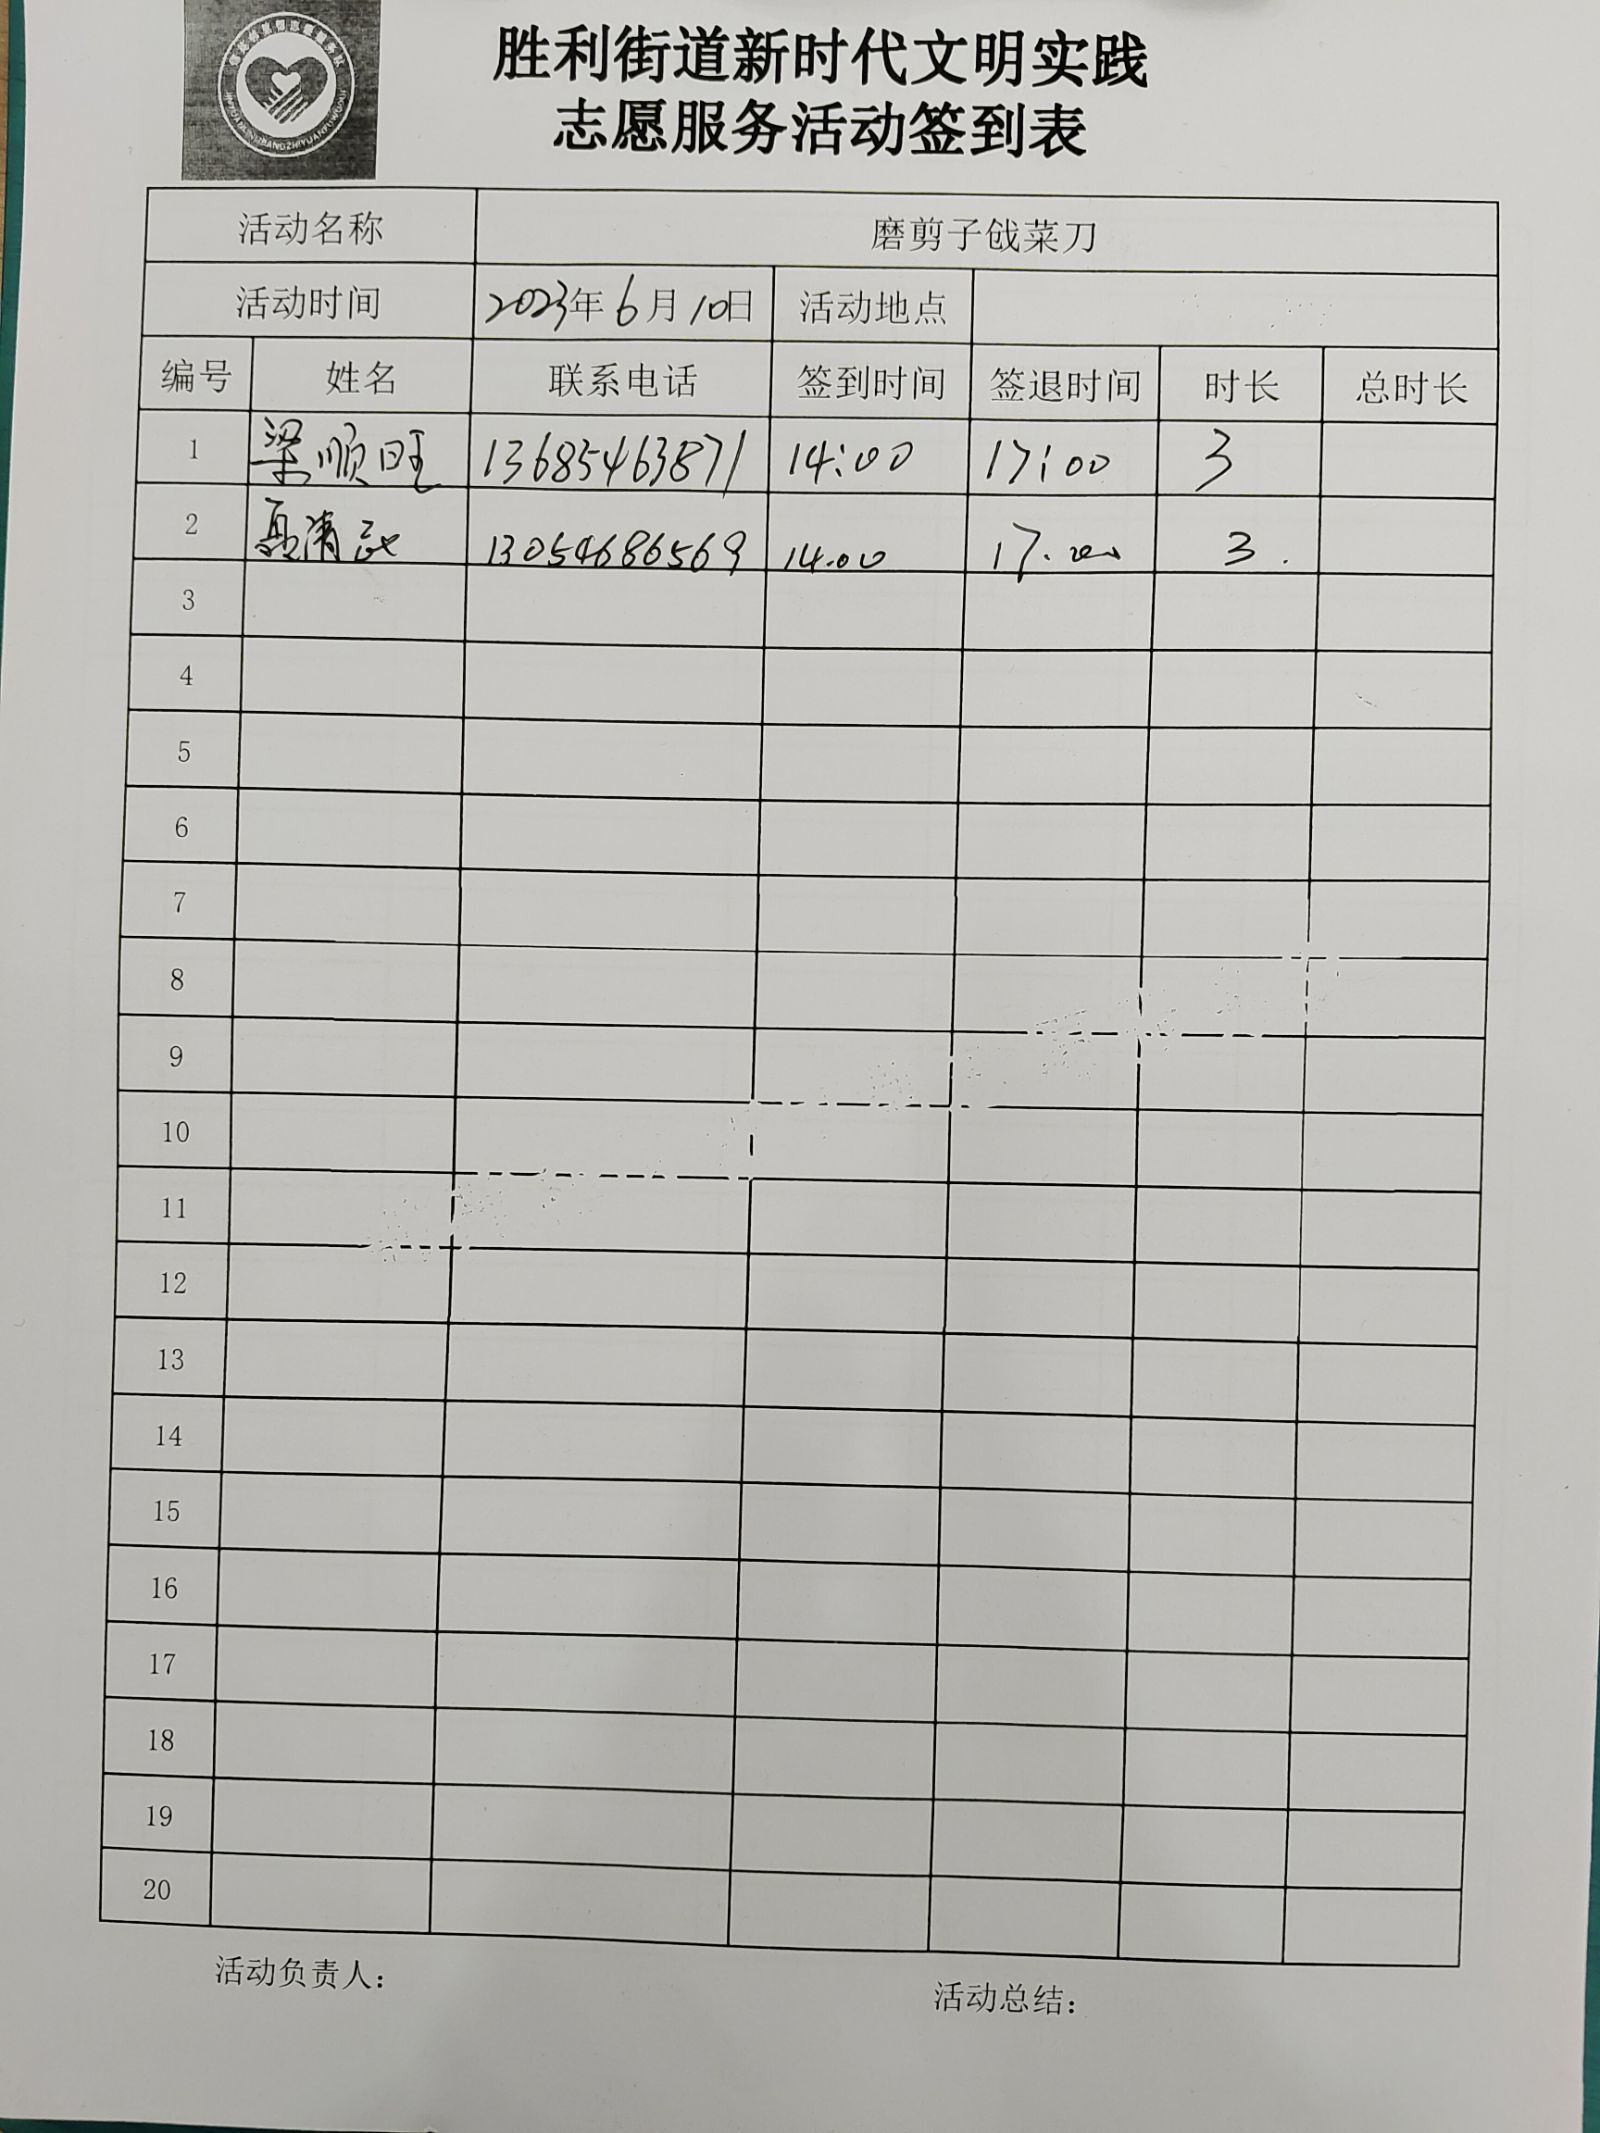 胜利街道新时代文明实践
志愿服务活动签到表
活动名称 磨剪子戗菜刀
活动时间 2023年6月10日 活动地点
编号 姓名 联系电话 签到时间 签退时间 时长 总时长
1 梁顺旺 13685463871 14:00 17:00 3
2 聂清 13054686569 14.00 17.00 3.
3
4
5
6
7
8
9
10
11
12
13
14
15
16
17
18
19
20
活动负责人： 活动总结：